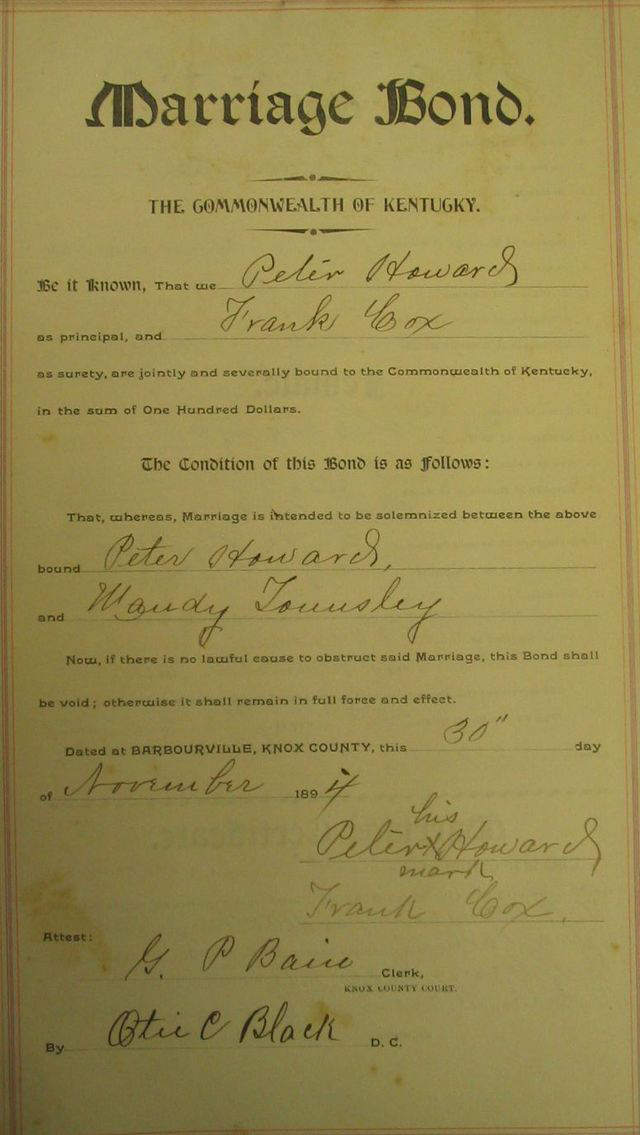 Marriage Bond.
THE COMMONWEALTH OF KENTUCKY.
Be it Known, That we Peter Howard
as principal, and Frank Cox
as surety, are jointly and severally bound to the Commonwealth of Kentucky,
in the sum of One Hundred Dollars.
The Condition of this Bond is as Follows:
That, whereas, Marriage is intended to be solemnized between the above
bound Peter Howard,
and Mandy Townsley
Now, if there is no lawful cause to obstruct said Marriage, this Bond shall
be void; otherwise it shall remain in full force and effect.
Dated at BARBOURVILLE, KNOX COUNTY, this 30" day
of November 1894
his
Peter X Howard
mark
Frank Cox.
Attest:
G. P Bain Clerk,
KNOX COUNTY COURT.
By C Black D. C.